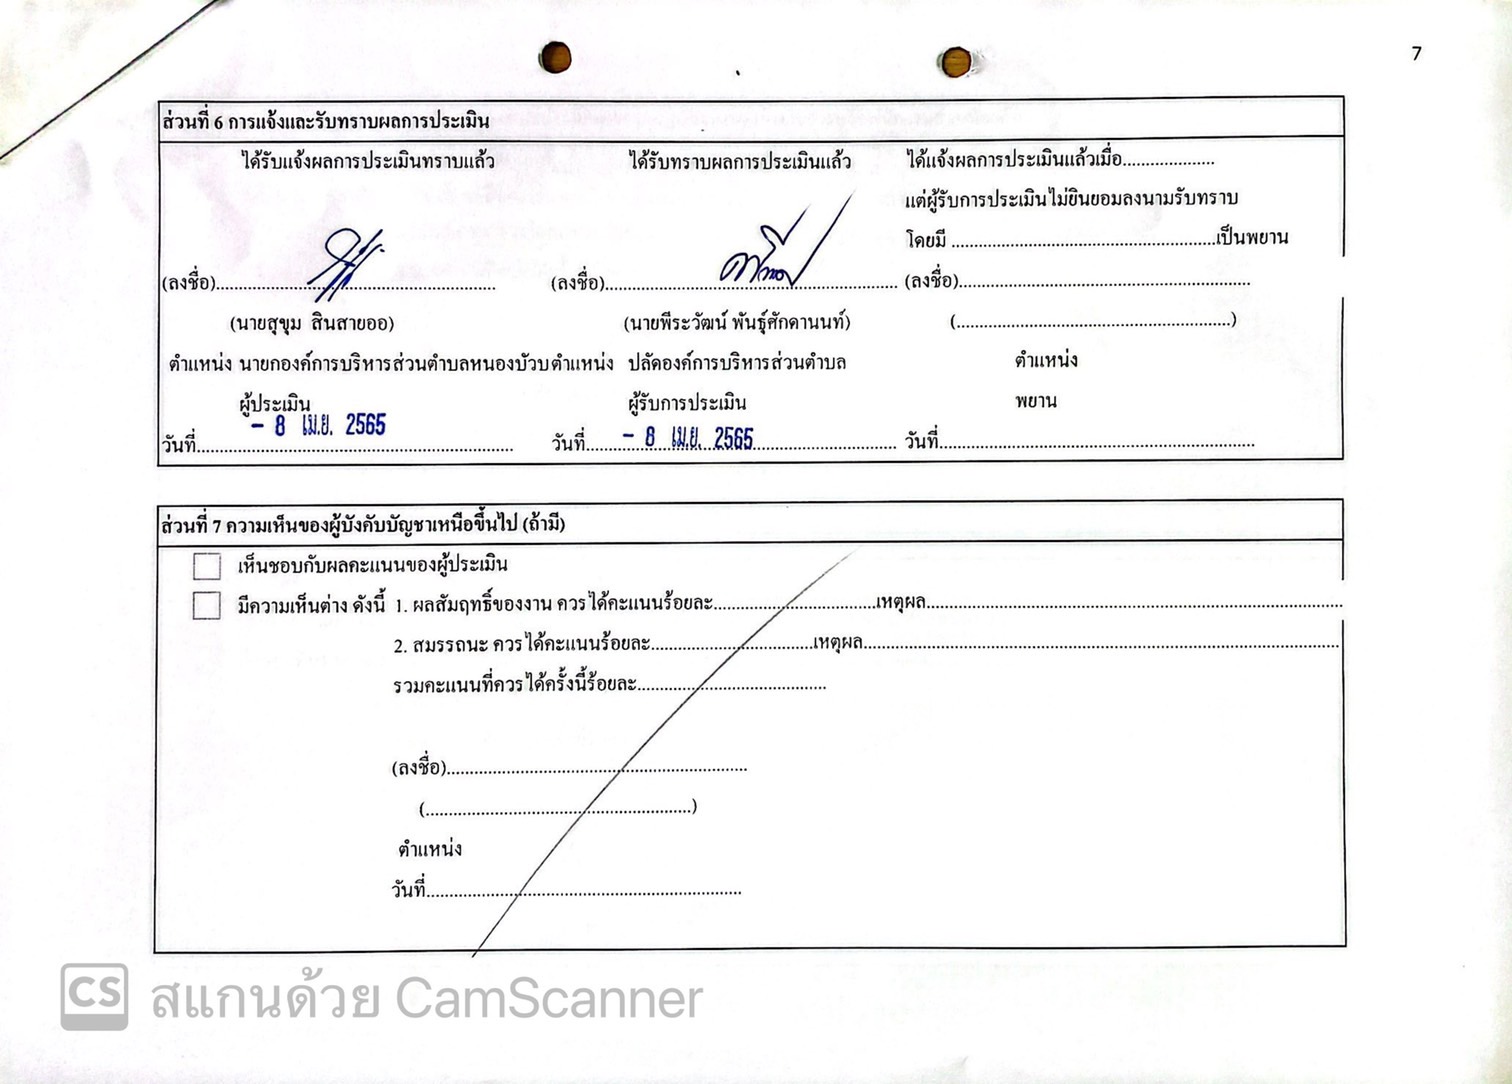 7
ส่วนที่ 6 การแจ้งและรับทราบผลการประเมิน
ได้รับแจ้งผลการประเมินทราบแล้ว ได้รับทราบผลการประเมินแล้ว ได้แจ้งผลการประเมินแล้วเมื่อ....................
แต่ผู้รับการประเมินไม่ยินยอมลงนามรับทราบ
โดยมี .........................................................เป็นพยาน
(ลงชื่อ)............................................................ (ลงชื่อ)............................................................ (ลงชื่อ)............................................................
(นายสุขุม สินสายออ) (นายพีระวัฒน์ พันธุ์ศักดานนท์) (............................................................)
ตำแหน่ง นายกองค์การบริหารส่วนตำบลหนองบัวบ ตำแหน่ง ปลัดองค์การบริหารส่วนตำบล ตำแหน่ง
ผู้ประเมิน ผู้รับการประเมิน พยาน
วันที่ - 8 เม.ย. 2565 วันที่ - 8 เม.ย. 2565 วันที่............................................................
ส่วนที่ 7 ความเห็นของผู้บังคับบัญชาเหนือขึ้นไป (ถ้ามี)
เห็นชอบกับผลคะแนนของผู้ประเมิน
มีความเห็นต่าง ดังนี้ 1. ผลสัมฤทธิ์ของงาน ควรได้คะแนนร้อยละ...................................เหตุผล............................................................
2. สมรรถนะ ควรได้คะแนนร้อยละ...................................เหตุผล............................................................
รวมคะแนนที่ควรได้ครั้งนี้ร้อยละ........................................
(ลงชื่อ)............................................................
(............................................................)
ตำแหน่ง
วันที่............................................................
CS สแกนด้วย CamScanner